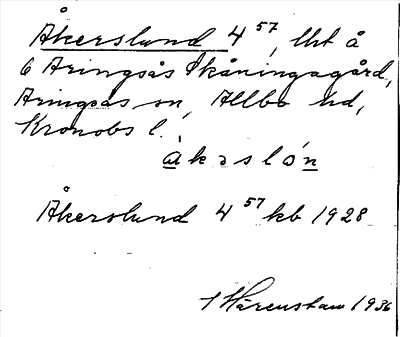 Åkerslund 4⁵⁷, lht å
6 Aringsås Skåningagård,
Aringsås sn, Allbo hd,
Kronobs l.
åkəslón
Åkerslund 4⁵⁷ kb 1928
1936